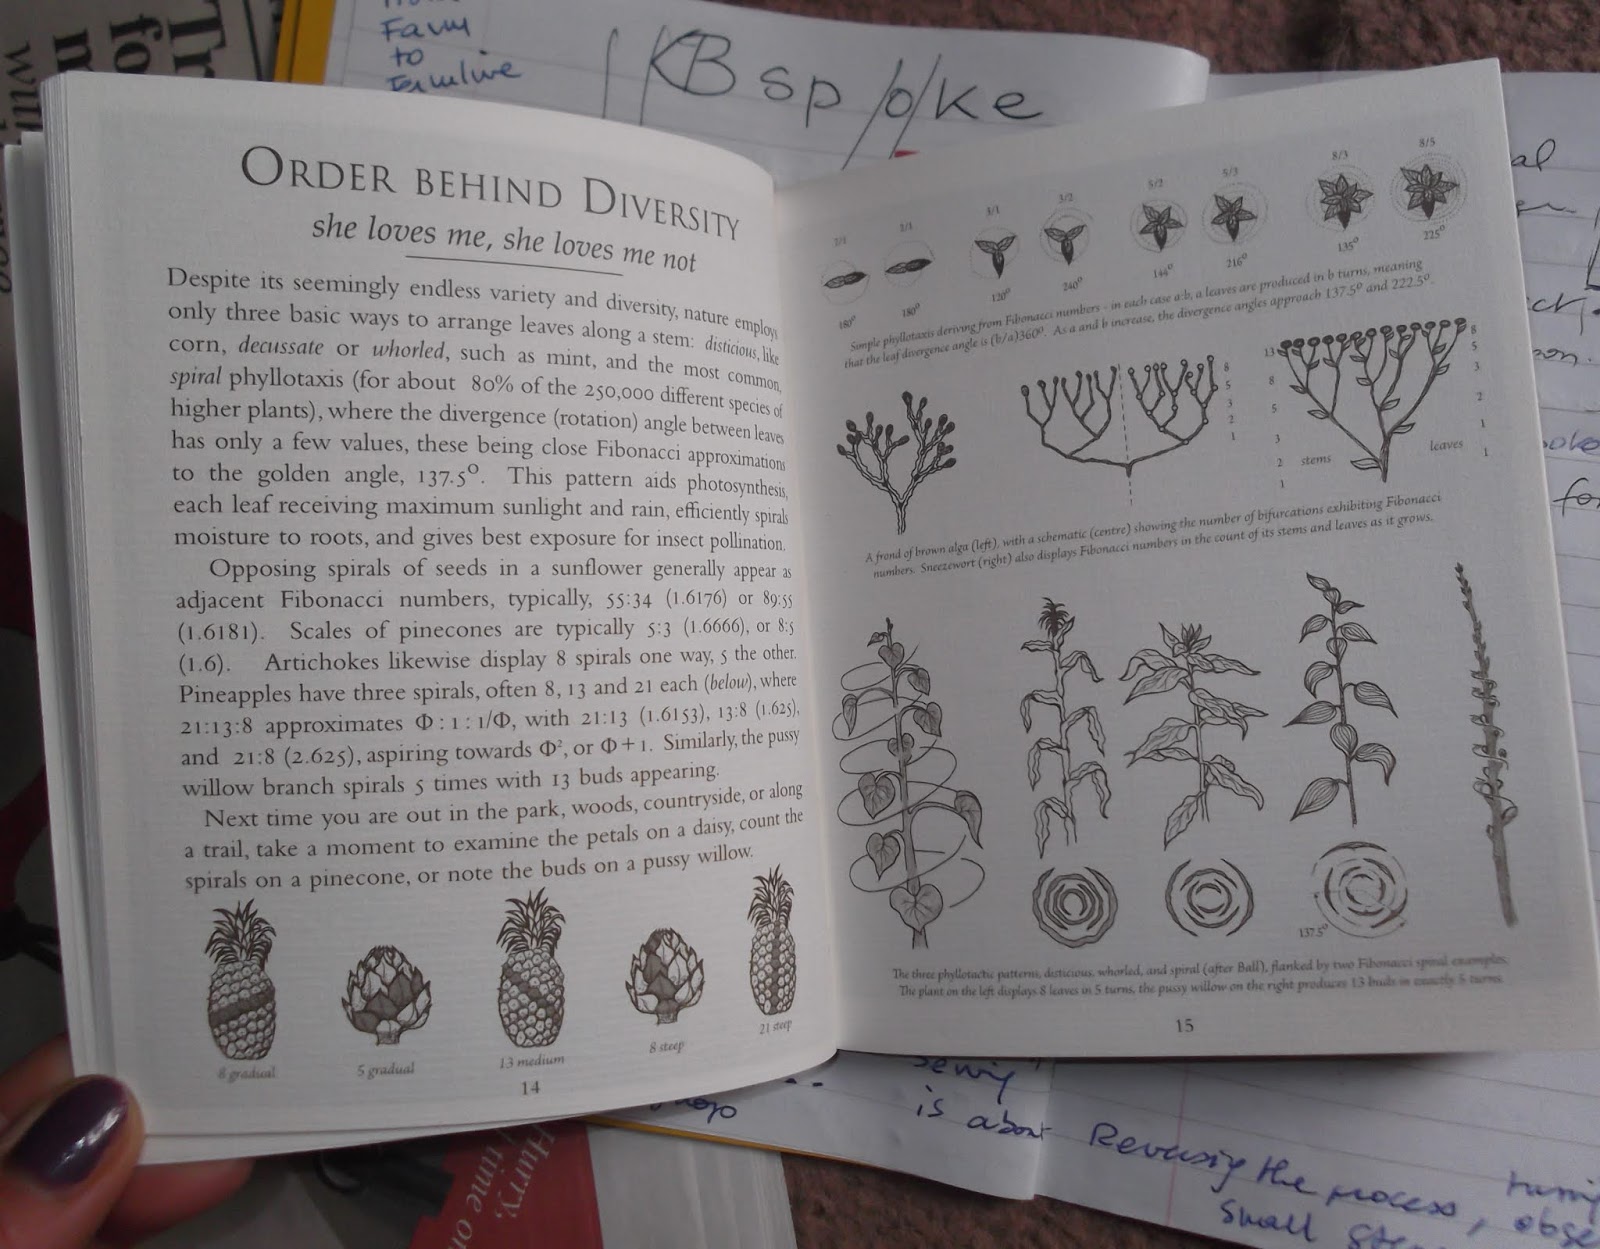 Farm
to
KB sp/o/ke
ORDER BEHIND DIVERSITY
she loves me, she loves me not
Despite its seemingly endless variety and diversity, nature employs
only three basic ways to arrange leaves along a stem: disticious, like
corn, decussate or whorled, such as mint, and the most common,
spiral phyllotaxis (for about 80% of the 250,000 different species of
higher plants), where the divergence (rotation) angle between leaves
has only a few values, these being close Fibonacci approximations
to the golden angle, 137.5°. This pattern aids photosynthesis,
each leaf receiving maximum sunlight and rain, efficiently spirals
moisture to roots, and gives best exposure for insect pollination.
Opposing spirals of seeds in a sunflower generally appear as
adjacent Fibonacci numbers, typically, 55:34 (1.6176) or 89:55
(1.6181). Scales of pinecones are typically 5:3 (1.6666), or 8:5
(1.6). Artichokes likewise display 8 spirals one way, 5 the other.
Pineapples have three spirals, often 8, 13 and 21 each (below), where
21:13:8 approximates Φ:1:1/Φ, with 21:13 (1.6153), 13:8 (1.625),
and 21:8 (2.625), aspiring towards Φ², or Φ+1. Similarly, the pussy
willow branch spirals 5 times with 13 buds appearing.
Next time you are out in the park, woods, countryside, or along
a trail, take a moment to examine the petals on a daisy, count the
spirals on a pinecone, or note the buds on a pussy willow.
8 gradual 5 gradual 13 medium 8 steep 21 steep
14
2/1 2/1 3/1 3/2 5/2 5/3 8/3 8/5
180° 180° 120° 240° 144° 216° 135° 225°
Simple phyllotaxis deriving from Fibonacci numbers - in each case a:b, a leaves are produced in b turns, meaning
that the leaf divergence angle is (b/a)360°. As a and b increase, the divergence angles approach 137.5° and 222.5°.
8
5
3
2
1
13
8
5
3
2 stems
1
8
5
3
2
1
leaves
1
A frond of brown alga (left), with a schematic (centre) showing the number of bifurcations exhibiting Fibonacci
numbers. Sneezewort (right) also displays Fibonacci numbers in the count of its stems and leaves as it grows.
137.5°
The three phyllotactic patterns, disticious, whorled, and spiral (after Ball), flanked by two Fibonacci spiral examples.
The plant on the left displays 8 leaves in 5 turns, the pussy willow on the right produces 13 buds in exactly 5 turns.
15
is about Reversing the process,
small
Hurry,
time